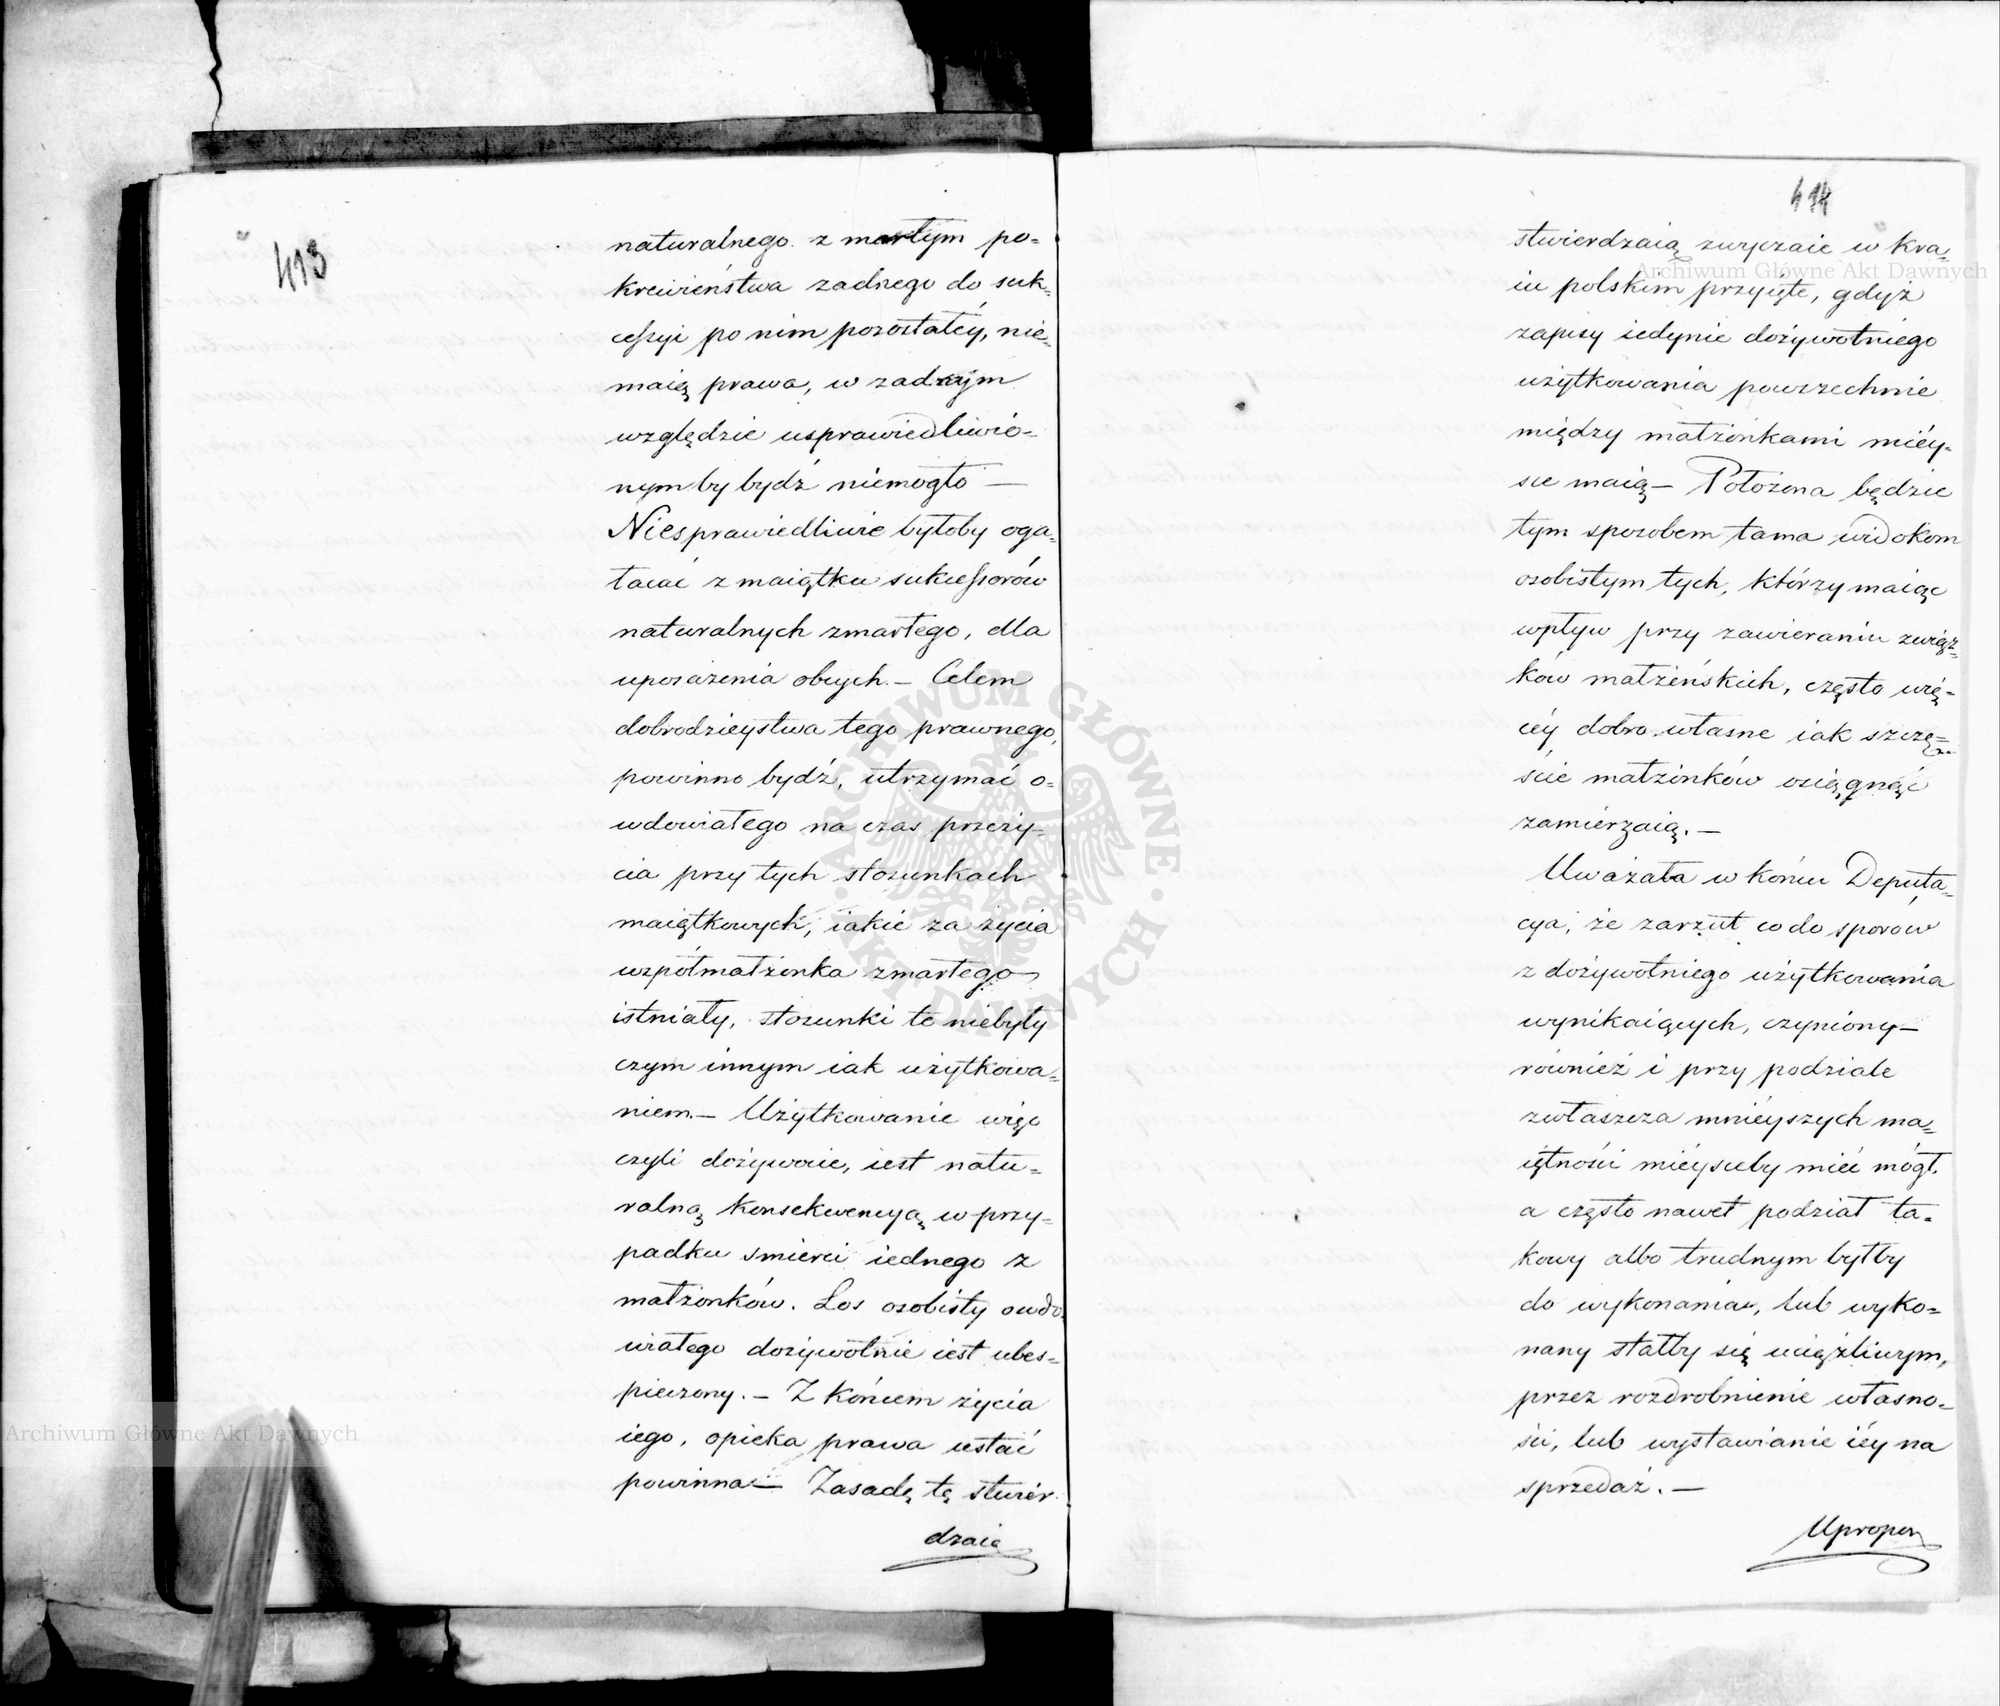 413
naturalnego z martym po-
krewieństwa zadnego do suk-
cessyi po nim pozostałéy, nie-
maią prawa, w zadnym
względzie usprawiedliwio-
nym by bydź niemogło —
Niesprawiedliwie byłoby oga-
łacać z maiątku sukcessorów
naturalnych zmarłego, dla
uposażenia obcych. — Celem
dobrodzieystwa tego prawnego,
powinno bydź, utrzymać o-
wdowiałego na czas przeży-
cia przy tych stosunkach
maiątkowych, iakie za życia
wspołmałżonka zmarłego
istniały, stosunki te niebyły
czym innym iak użytkowa-
niem. — Użytkowanie więc
czyli dożywocie, iest natu-
ralną konsekwencyą w przy-
padku smierci iednego z
małżonków. Los osobisty owdo-
wiałego dożywotnie iest ubes-
pieczony. — Z końcem życia
iego, opieka prawa ustać
powinna — Zasadę tę stwier-
dzaią
414
stwierdzaią zwyczaie w kra-
iu polskim przyięte, gdyż
zapisy iedynie dożywotniego
użytkowania powszechnie
między małżonkami miéy-
sce maią — Położona będzie
tym sposobem tama widokom
osobistym tych, którzy maiąc
wpływ przy zawieraniu związ-
ków małżeńskich, często wię-
céy dobro własne iak szczę-
ście małżonków osiągnąć
zamierzaią. —
Uważała w końcu Deputa-
cya, że zarzut co do sporów
z dożywotniego użytkowania
wynikaiących, czyniony —
również i przy podziale
zwłaszcza mniéyszych ma-
iętności miéysceby mieć mógł.
a często nawet podział ta-
kowy albo trudnym byłby
do wykonania, lub wyko-
nany stałby się uciążliwym,
przez rozdrobnienie własno-
ści, lub wystawianie iéy na
sprzedaż. —
Upropon
Archiwum Główne Akt Dawnych
Archiwum Główne Akt Dawnych
ARCHIWUM GŁÓWNE AKT DAWNYCH